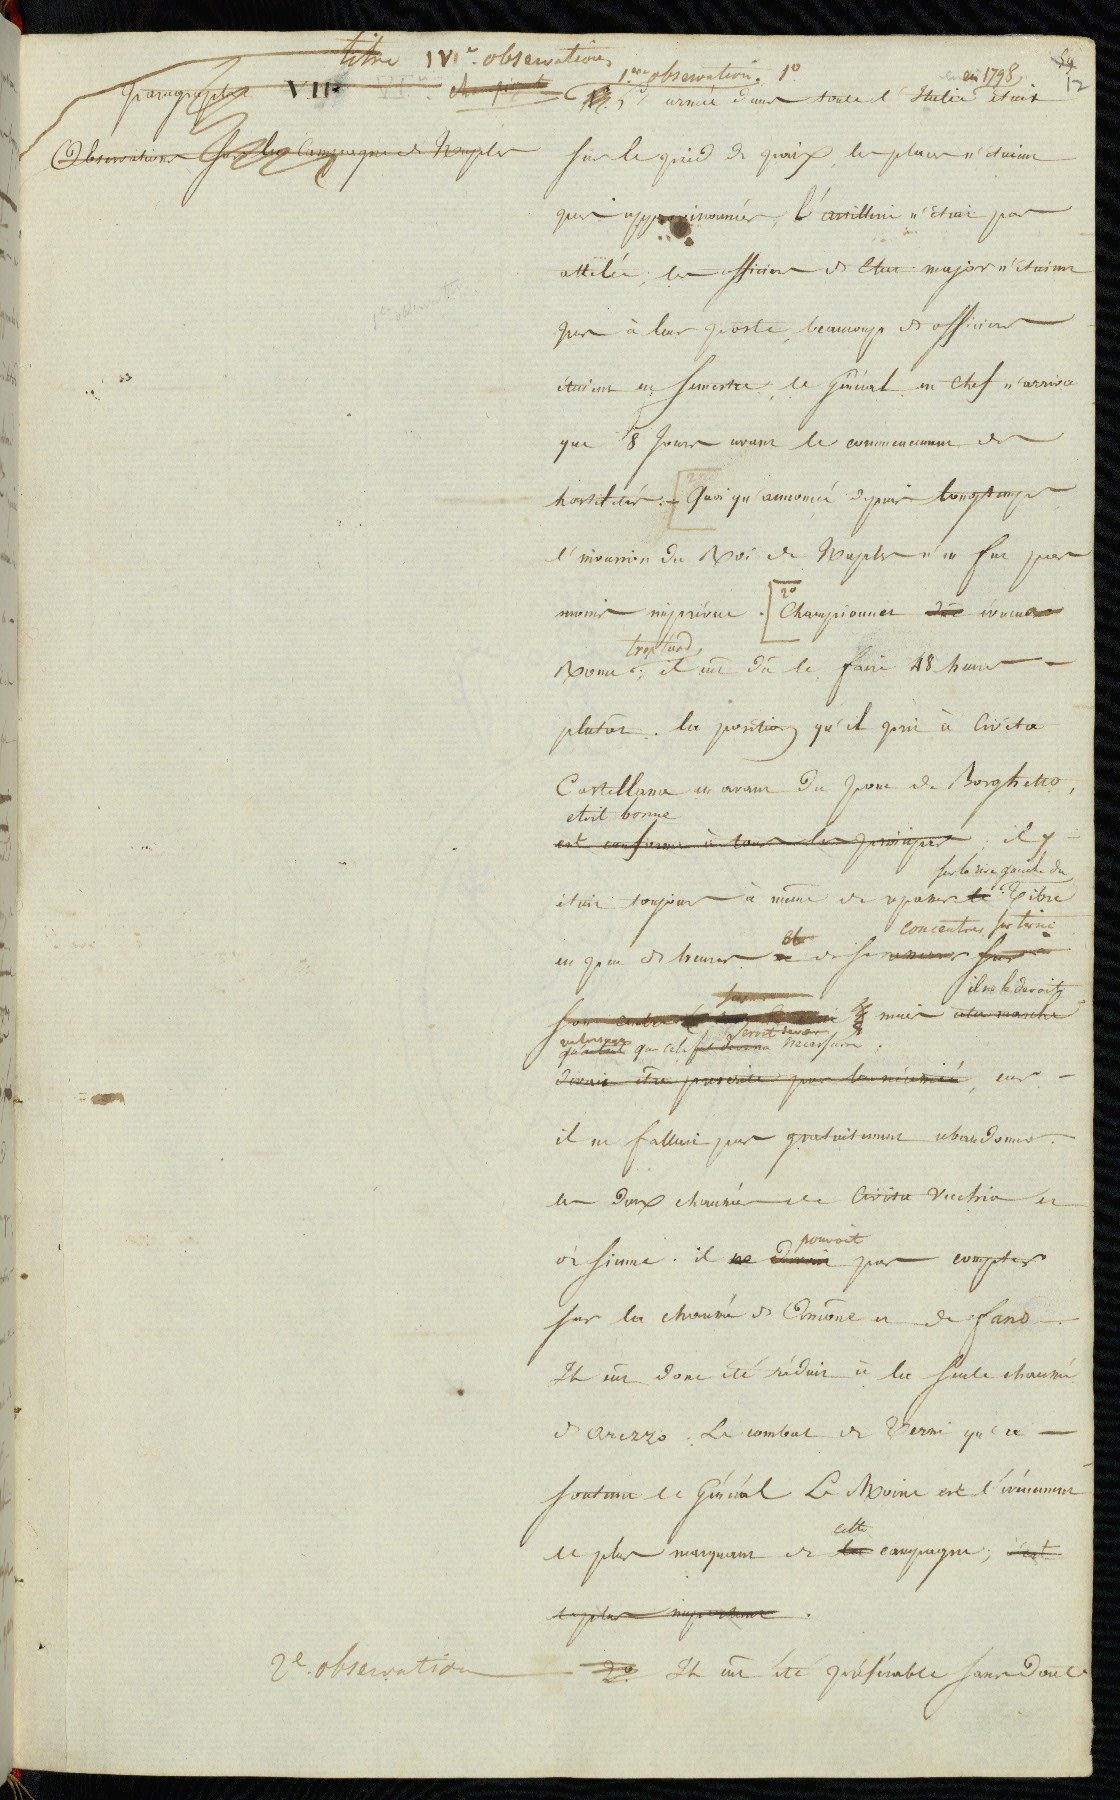 titre IVr. observations
59
12
1ere observation. 1º
en 1798,
paragraphe VIIe L'armée dans toute l'Italie était
Observations sur la Campagne de Naples
sur le pied de paix, les places n'étaient
pas approvisionnées, l'artillerie n'était pas
attelée, les officiers d'Etat major n'étaient
pas à leur poste, beaucoup d'officiers
étaient en semestre, le Général en Chef n'arriva
que 8 jours avant le commencement des
hostilités. Quoi qu'annoncée depuis longtemps
l'invasion du Roi de Naples n'en fut pas
moins imprévue. 2º Championnet évacua
trop tard,
Rome; il eut dû le faire 48 heures
plutôt. la position qu'il prit à Civita
Castellana en avant du pont de Borghetto,
etoit bonne
est conforme à tous les principes, il y
sur la rive gauche du
était toujours à même de repasser le Tibre
concentrer sur terni
en peu de heures et de se
il ne le devoit
mais
qu'autant que cela seroit necessaire.
devait être prescrite par la nécessité, car
il ne fallait pas gratuitement abandonner
les deux chaussées de Civita Vechia et
pouvoit
de Sienne. il ne devait pas compter
sur la chaussée d'Ancône et de fano
Il eut donc été réduit à la seule chaussée
d'arezzo. Le combat de Terni qu'a
soutenu le Général Le Moine est l'événement
cette
le plus marquant de la campagne; c'est
le plus important.
2e. observation
2º Il eut été préférable sans doute